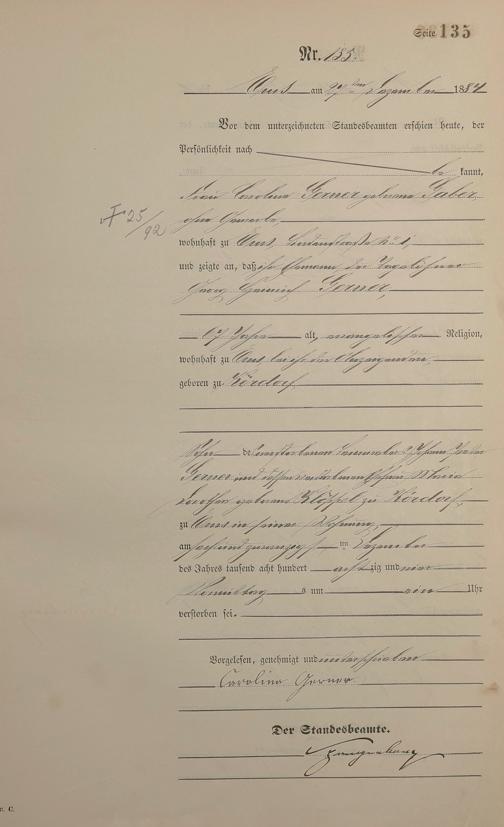 Seite 135
Nr. 155.
Ems am 27ten Dezember 1884
Vor dem unterzeichneten Standesbeamten erschien heute, der
Persönlichkeit nach
be kannt,
Frau Carolina Gerner geborene Faber,
ohne Gewerbe
† 25/92
wohnhaft zu Ems, Lindenstraße No 1,
und zeigte an, daß ihr Ehemann, der Tagelöhner
Georg Heinrich Gerner,
67 Jahre alt, evangelischer Religion,
wohnhaft zu Ems bei der Anzeigenden,
geboren zu Kördorf
Sohn des verstorbenen Johann
Gerner und dessen verstorbenen Ehefrau Maria
geborene Klöppel zu Kördorf,
zu Ems in seiner Wohnung,
am sechsundzwanzigsten Dezember
des Jahres tausend acht hundert achtzig und vier
Vormittags um ein Uhr
verstorben sei.
Vorgelesen, genehmigt und unterschrieben
Carolina Gerner
Der Standesbeamte.
C.